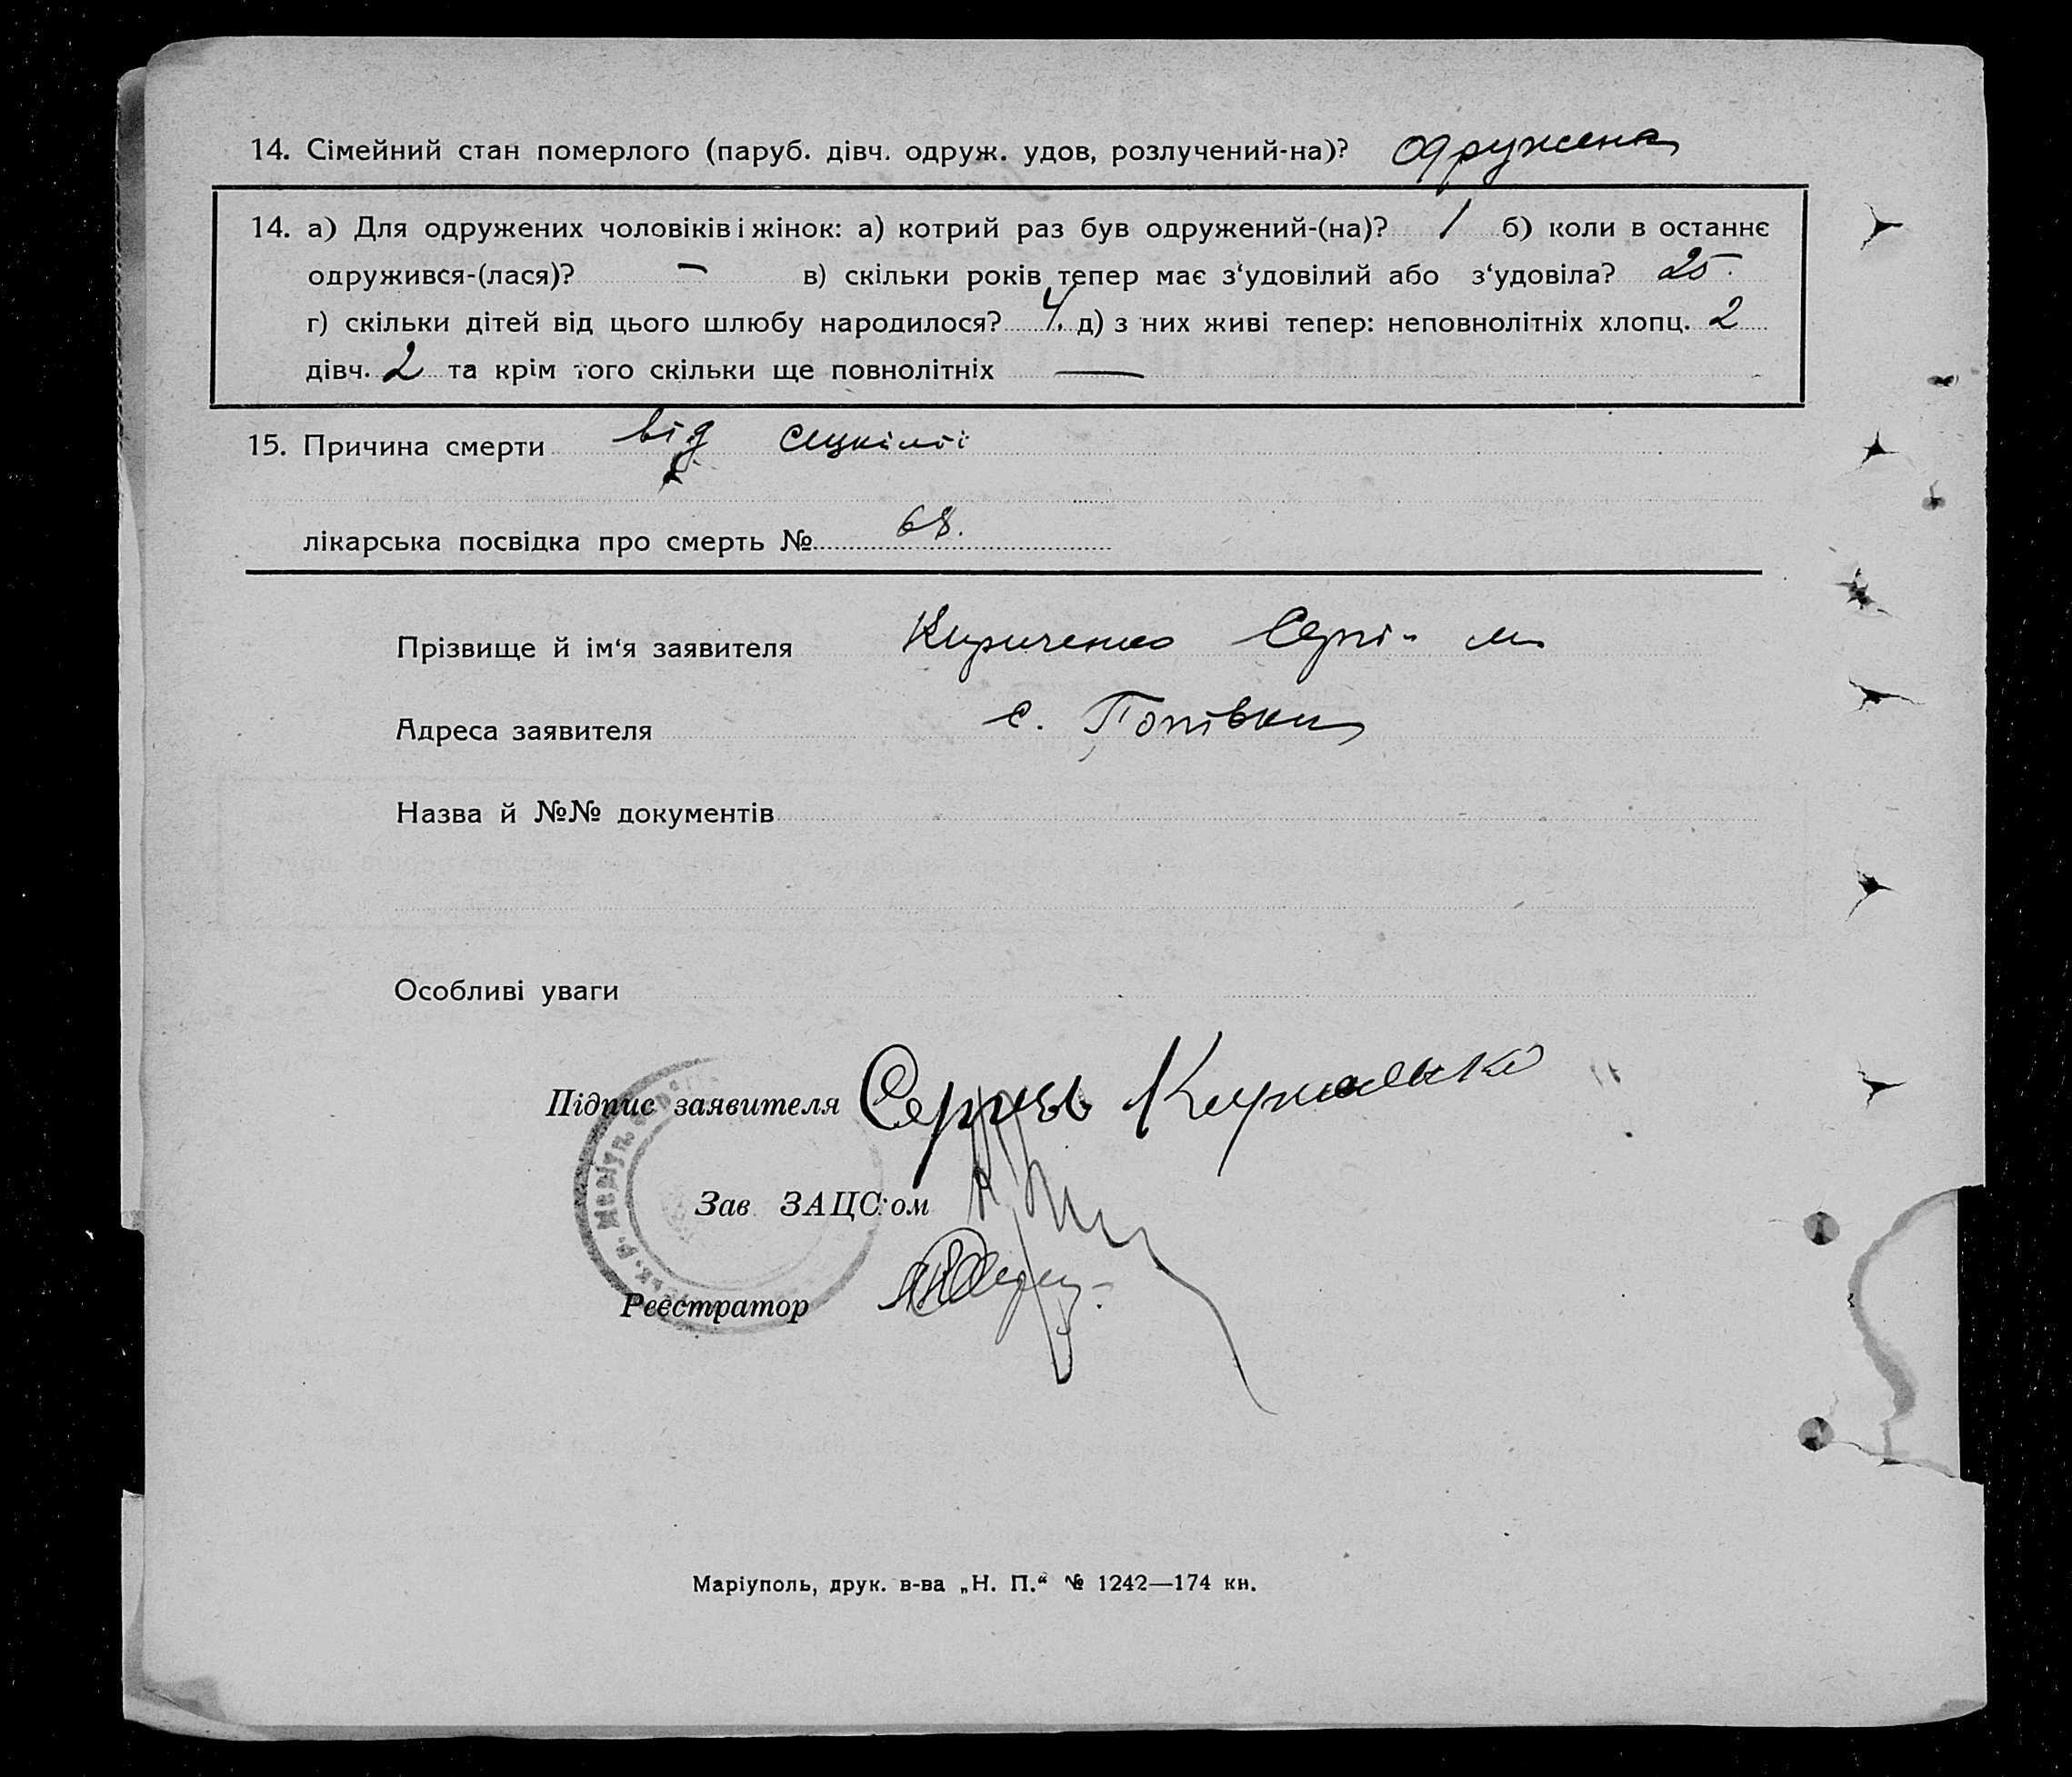 14. Сімейний стан померлого (паруб. дівч. одруж. удов, розлучений-на)? одружена
14. а) Для одружених чоловіків і жінок: а) котрий раз був одружений-(на)? 1 б) коли в останнє
одружився-(лася)? — в) скільки років тепер має з‘удовілий або з‘удовіла? 25.
г) скільки дітей від цього шлюбу народилося? 4. д) з них живі тепер: неповнолітніх хлопц. 2
дівч. 2 та крім того скільки ще повнолітніх —
15. Причина смерти від
лікарська посвідка про смерть № 68.
Прізвище й ім‘я заявителя Кириченко Сергі
Адреса заявителя с. Попівка
Назва й №№ документів
Особливі уваги
Підпис заявителя Сергей
Зав ЗАЦС‘ом
Реєстратор
Маріуполь, друк. в-ва „Н. П.“ № 1242—174 кн.